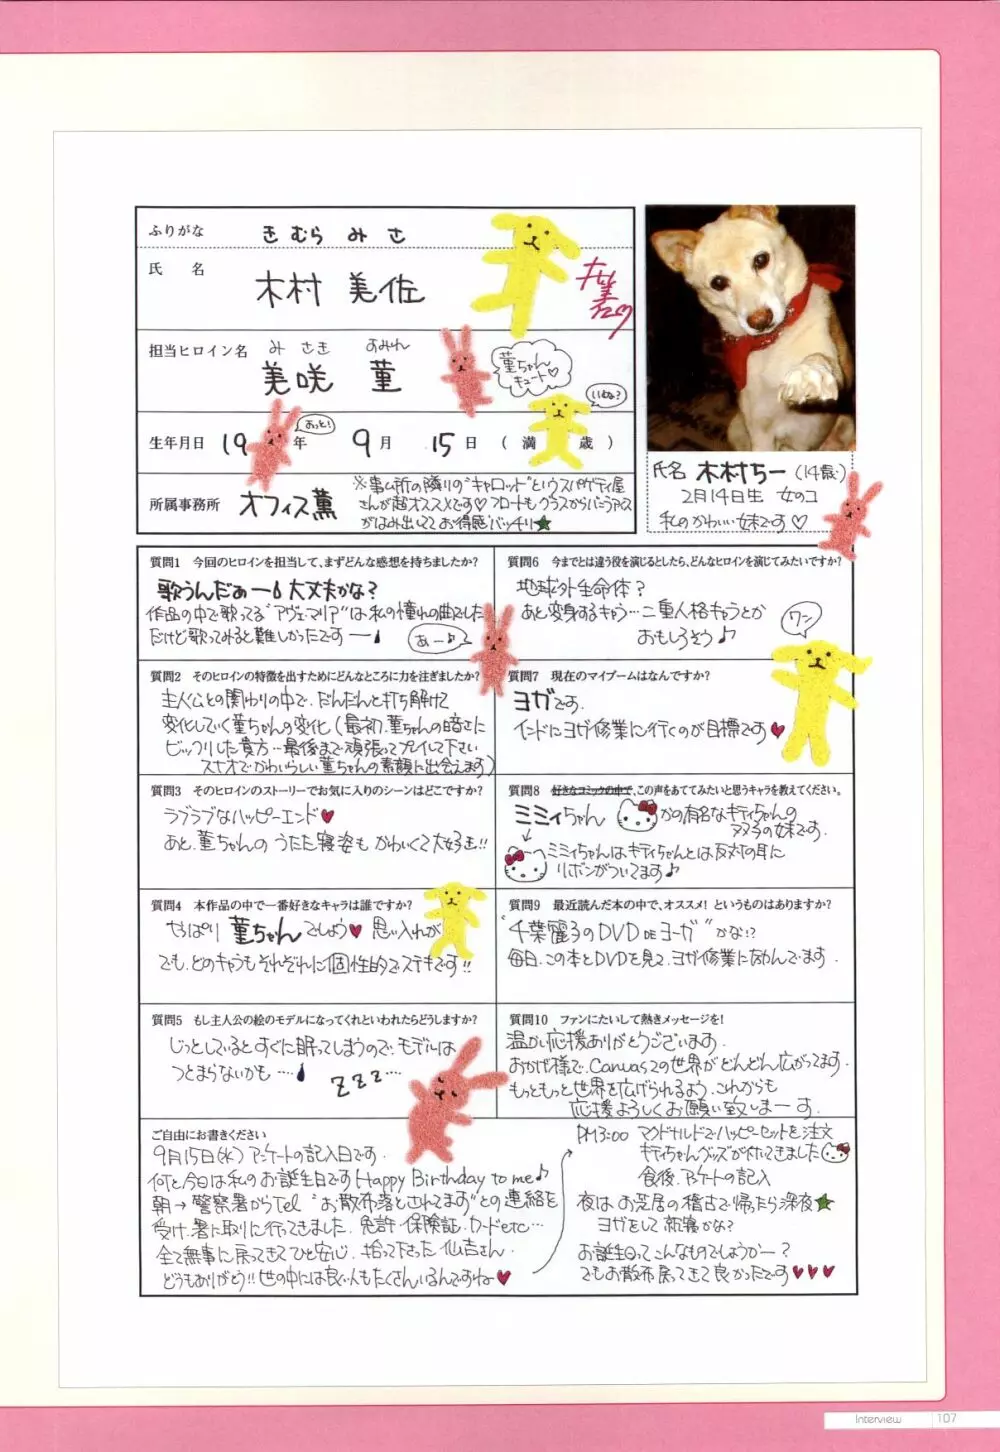 ふりがな きむら みさ
氏名 木村 美佐
担当ヒロイン名 みさき すみれ
美咲 菫
菫ちゃん
キュート♡
生年月日 19 年 9月 15日 (満 歳)
おっと!
いやな?
所属事務所 オフィス薫
※事ム所の隣りの“キャロット”というスパゲティ屋
さんが超オススメです♡フロートもグラスからバニラアイス
がはみ出いてて お得感バッチリ★
氏名 木村ちー(14歳)
2月14日生 女のコ
私のかわいい妹です♡
質問1 今回のヒロインを担当して、まずどんな感想を持ちましたか?
歌うんだぁー 大丈夫かな?
作品の中で歌ってる“アヴェ・マリア”は私の憧れの曲でした
だけど歌ってみると難しかったですー
あー♪
質問2 そのヒロインの特徴を出すためにどんなところに力を注ぎましたか?
主人公との関わりの中で、だんだんと打ち解けて
変化していく菫ちゃんの変化(最初、菫ちゃんの暗さに
ビックリした貴方…最後まで頑張ってプレイして下さい
スナオでかわいらしい菫ちゃんの素顔に出会えます)
質問3 そのヒロインのストーリーでお気に入りのシーンはどこですか?
ラブラブなハッピーエンド♥
あと、菫ちゃんの うたた寝姿も かわいくて大好き!!
質問4 本作品の中で一番好きなキャラは誰ですか?
やっぱり 菫ちゃんでしょう♥ 思い入れが
でも、どのキャラもそれぞれに個性的でステキです!!
質問5 もし主人公の絵のモデルになってくれといわれたらどうしますか?
じっとしているとすぐに眠ってしまうので、モデルは
つとまらないかも ‥‥
zzz‥‥
質問6 今までとは違う役を演じるとしたら、どんなヒロインを演じてみたいですか?
地球外生命体?
あと変身するキャラ…二重人格キャラとか
おもしろそう♪
ワン
質問7 現在のマイブームはなんですか?
ヨガです.
インドにヨガ修業に行くのが目標です♥
質問8 好きなコミックの中で、この声をあててみたいと思うキャラを教えてください。
ミミィちゃん かの有名なキティちゃんの
双子の妹です.
ミミィちゃんはキティちゃんとは反対の耳に
リボンがついてます♪
質問9 最近読んだ本の中で、オススメ! というものはありますか?
“千葉麗子のDVD DE ヨーガ” かな!?
毎日、この本とDVDを見て、ヨガ修業に励んでます.
質問10 ファンにたいして熱きメッセージを!
温かい応援ありがとうございます.
おかげ様で、Canvas2の世界が どんどん広がってます.
もっともっと世界を広げられるよう、これからも
応援よろしくお願い致しまーす.
ご自由にお書きください
9月15日(水) アンケートの記入日です.
何と今日は私のお誕生日です Happy Birthday to me♪
朝→警察署からTel “お散布落とされてます”との連絡を
受け、署に取りに行ってきました. 免許・保険証・カードetc…
全て無事に戻ってきてひと安心. 拾って下さった 仏吉さん.
どうもありがとう!! 世の中には良い人もたくさんいるんですね♥
PM3:00 マクドナルドでハッピーセットを注文
キティちゃんグッズが付いてきました
食後、アンケートの記入
夜は お芝居の稽古で 帰ったら深夜★
ヨガをして 就寝かな?
お誕生日って こんなものでしょうかー?
でもお散布 戻ってきて良かったです♥♥♥
Interview 107